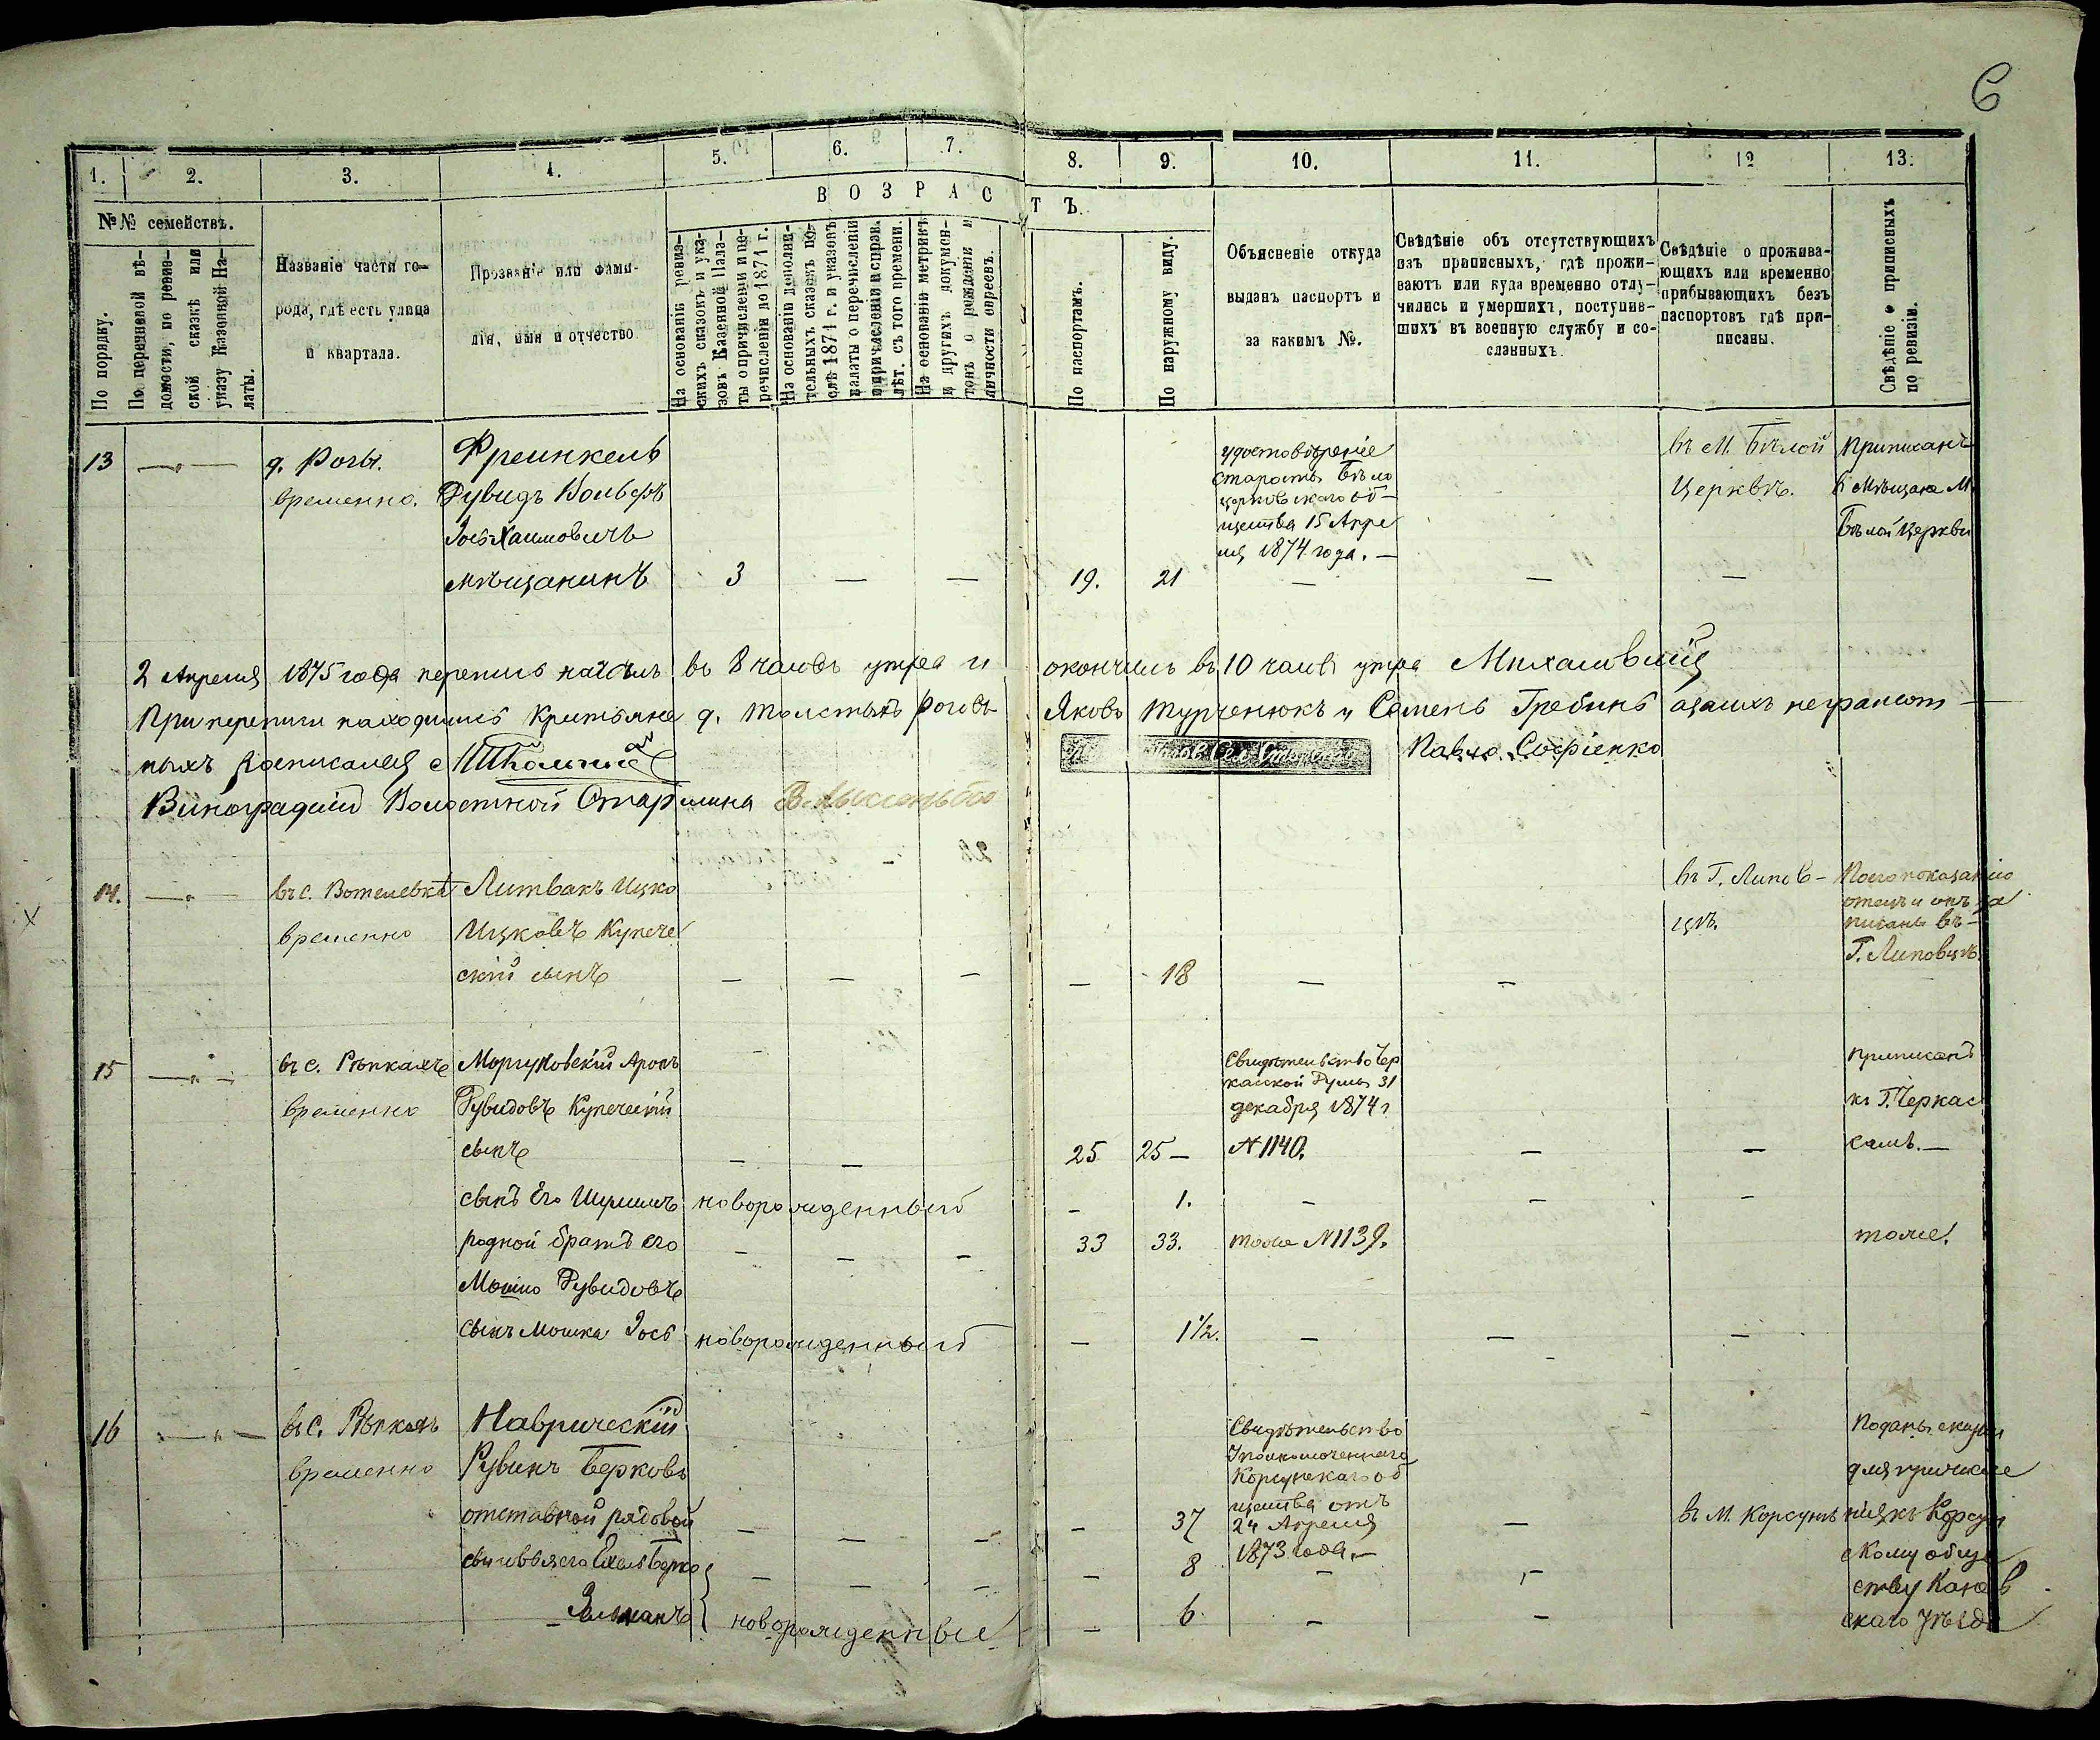 6
1. 2. 3. 4. 5. 6. 7. 8. 9. 10. 11. 12 13.
№№ семействъ.
По порядку.
По перечневой вѣ-
домости, по ревиз-
ской сказкѣ или
указу Казенной Па-
латы.
Названіе части го-
рода, гдѣ есть улица
и квартала.
Прозваніе или фами-
лія, имя и отчество
ВОЗРАСТЪ.
На основаніи ревиз-
скихъ сказокъ и ука-
зовъ Казенной Пала-
ты о причисленіи и пе-
речисленіи до 1871 г.
На основаніи дополни-
тельныхъ сказокъ по-
слѣ 1871 г. и указовъ
палаты о перечисленіи
и причисленіи и справ.
лѣт. съ того времени.
На основаніи метрикъ
и другихъ докумен-
товъ о рожденіи и
личности евреевъ.
По паспортамъ.
По наружному виду.
Объясненіе откуда
выданъ паспортъ и
за какимъ №.
Свѣдѣніе объ отсутствующихъ
изъ приписныхъ, гдѣ прожи-
ваютъ или куда временно отлу-
чились и умершихъ, поступив-
шихъ въ военную службу и со-
сланныхъ.
Свѣдѣніе о прожива-
ющихъ или временно
прибывающихъ безъ
паспортовъ гдѣ при-
писаны.
Свѣдѣніе о приписныхъ
по ревизіи.
13 — д. Роги. Фреинкель
временно. Рувидъ Вольфъ
Іось Хаимовичъ
мѣщанинъ 3 — — 19. 21 — — —
удостовѣреніе
старосты Бѣло
церковскаго об-
щества 15 Апре
ля 1874 года. —
въ М. Бѣлой
Церквѣ.
Приписанъ
Бѣлой Церкви
2 Апреля 1875 года перепись начали въ 8 часовъ утра и окончили въ 10 часов утра
При переписи находились Кристьяне д. Толстыхъ Роговъ Яковъ Турченюкъ и Семенъ Гребинь
ныхъ росписался
Павло Софіенко
Волостной Старшина
14. — въ с. Вотелевка Литвакъ Ицко
временно Ицковъ Купече
скій сынъ — — — — 18 — —
въ Г. Липов-
цѣ.
По его показанію
отецъ и онъ за
писаны въ
Г. Липовцѣ.
15 — въ с. Рѣпкахъ
временно Рувидовъ Купеческій
сынъ — — 25 25 — № 1140. — —
Свидѣтельство Чер
касской Думы 31
декабря 1874 г
приписанъ
къ Г. Черкас
самъ. —
сынъ Его новорожденный — 1. — — —
родной братъ его — — — 33 33. тоже № 1139. тоже.
Мошко Рувидовъ
сынъ Мошка Іось новорожденный — 1½. — — —
16 — въ с. Рѣпкахъ Таврическій
временно Рувинъ Берковъ
отставной рядовой — — — — 37 — въ М. Корсунѣ
Свидѣтельство
Уполномоченнаго
Корсунскаго об
щества отъ
24 Апреля
1873 года. —
Поданы сказки
для причисле
нія къ Корсун
скому обще
ству Канев
скаго Уѣзда
сыновья его — — — — 8 — —
Зельманъ новорожденные — 6 — —